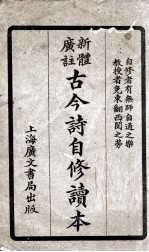 自修者有無師自通之樂
教授者免東翻西閱之勞
新體
廣註
古今詩自修讀本
上海廣文書局出版